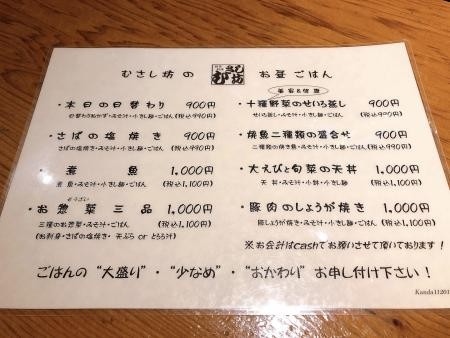 むさし坊の むさし坊 お昼ごはん
・本日の日替わり 900円
日替わりおかず・みそ汁・小さし鉢・ごはん (税込990円)
・さばの塩焼き 900円
さばの塩焼き・みそ汁・小さし鉢・ごはん (税込990円)
・煮魚 1,000円
煮魚・みそ汁・小さし鉢・ごはん (税込1,100円)
・お惣菜三品 1,000円
三種のお惣菜・みそ汁・ごはん (税込1,100円)
(お刺身・さばの塩焼き・天ぷら or とろろ汁)
美容&健康
・十種野菜のせいろ蒸し 900円
せいろ蒸し・みそ汁・小さし鉢・ごはん (税込990円)
・焼魚二種類の盛合せ 900円
二種類の焼き魚・みそ汁・小さし鉢・ごはん (税込990円)
・大えびと旬菜の天丼 1,000円
天丼・みそ汁・小鉢・小さし鉢 (税込1,100円)
・豚肉のしょうが焼き 1,000円
豚しょうが焼き・みそ汁・小さし鉢・ごはん (税込1,100円)
※お会計はcashでお願いさせて頂いております!
ごはんの“大盛り”・“少なめ”・“おかわり”お申し付け下さい!
Kanda11201